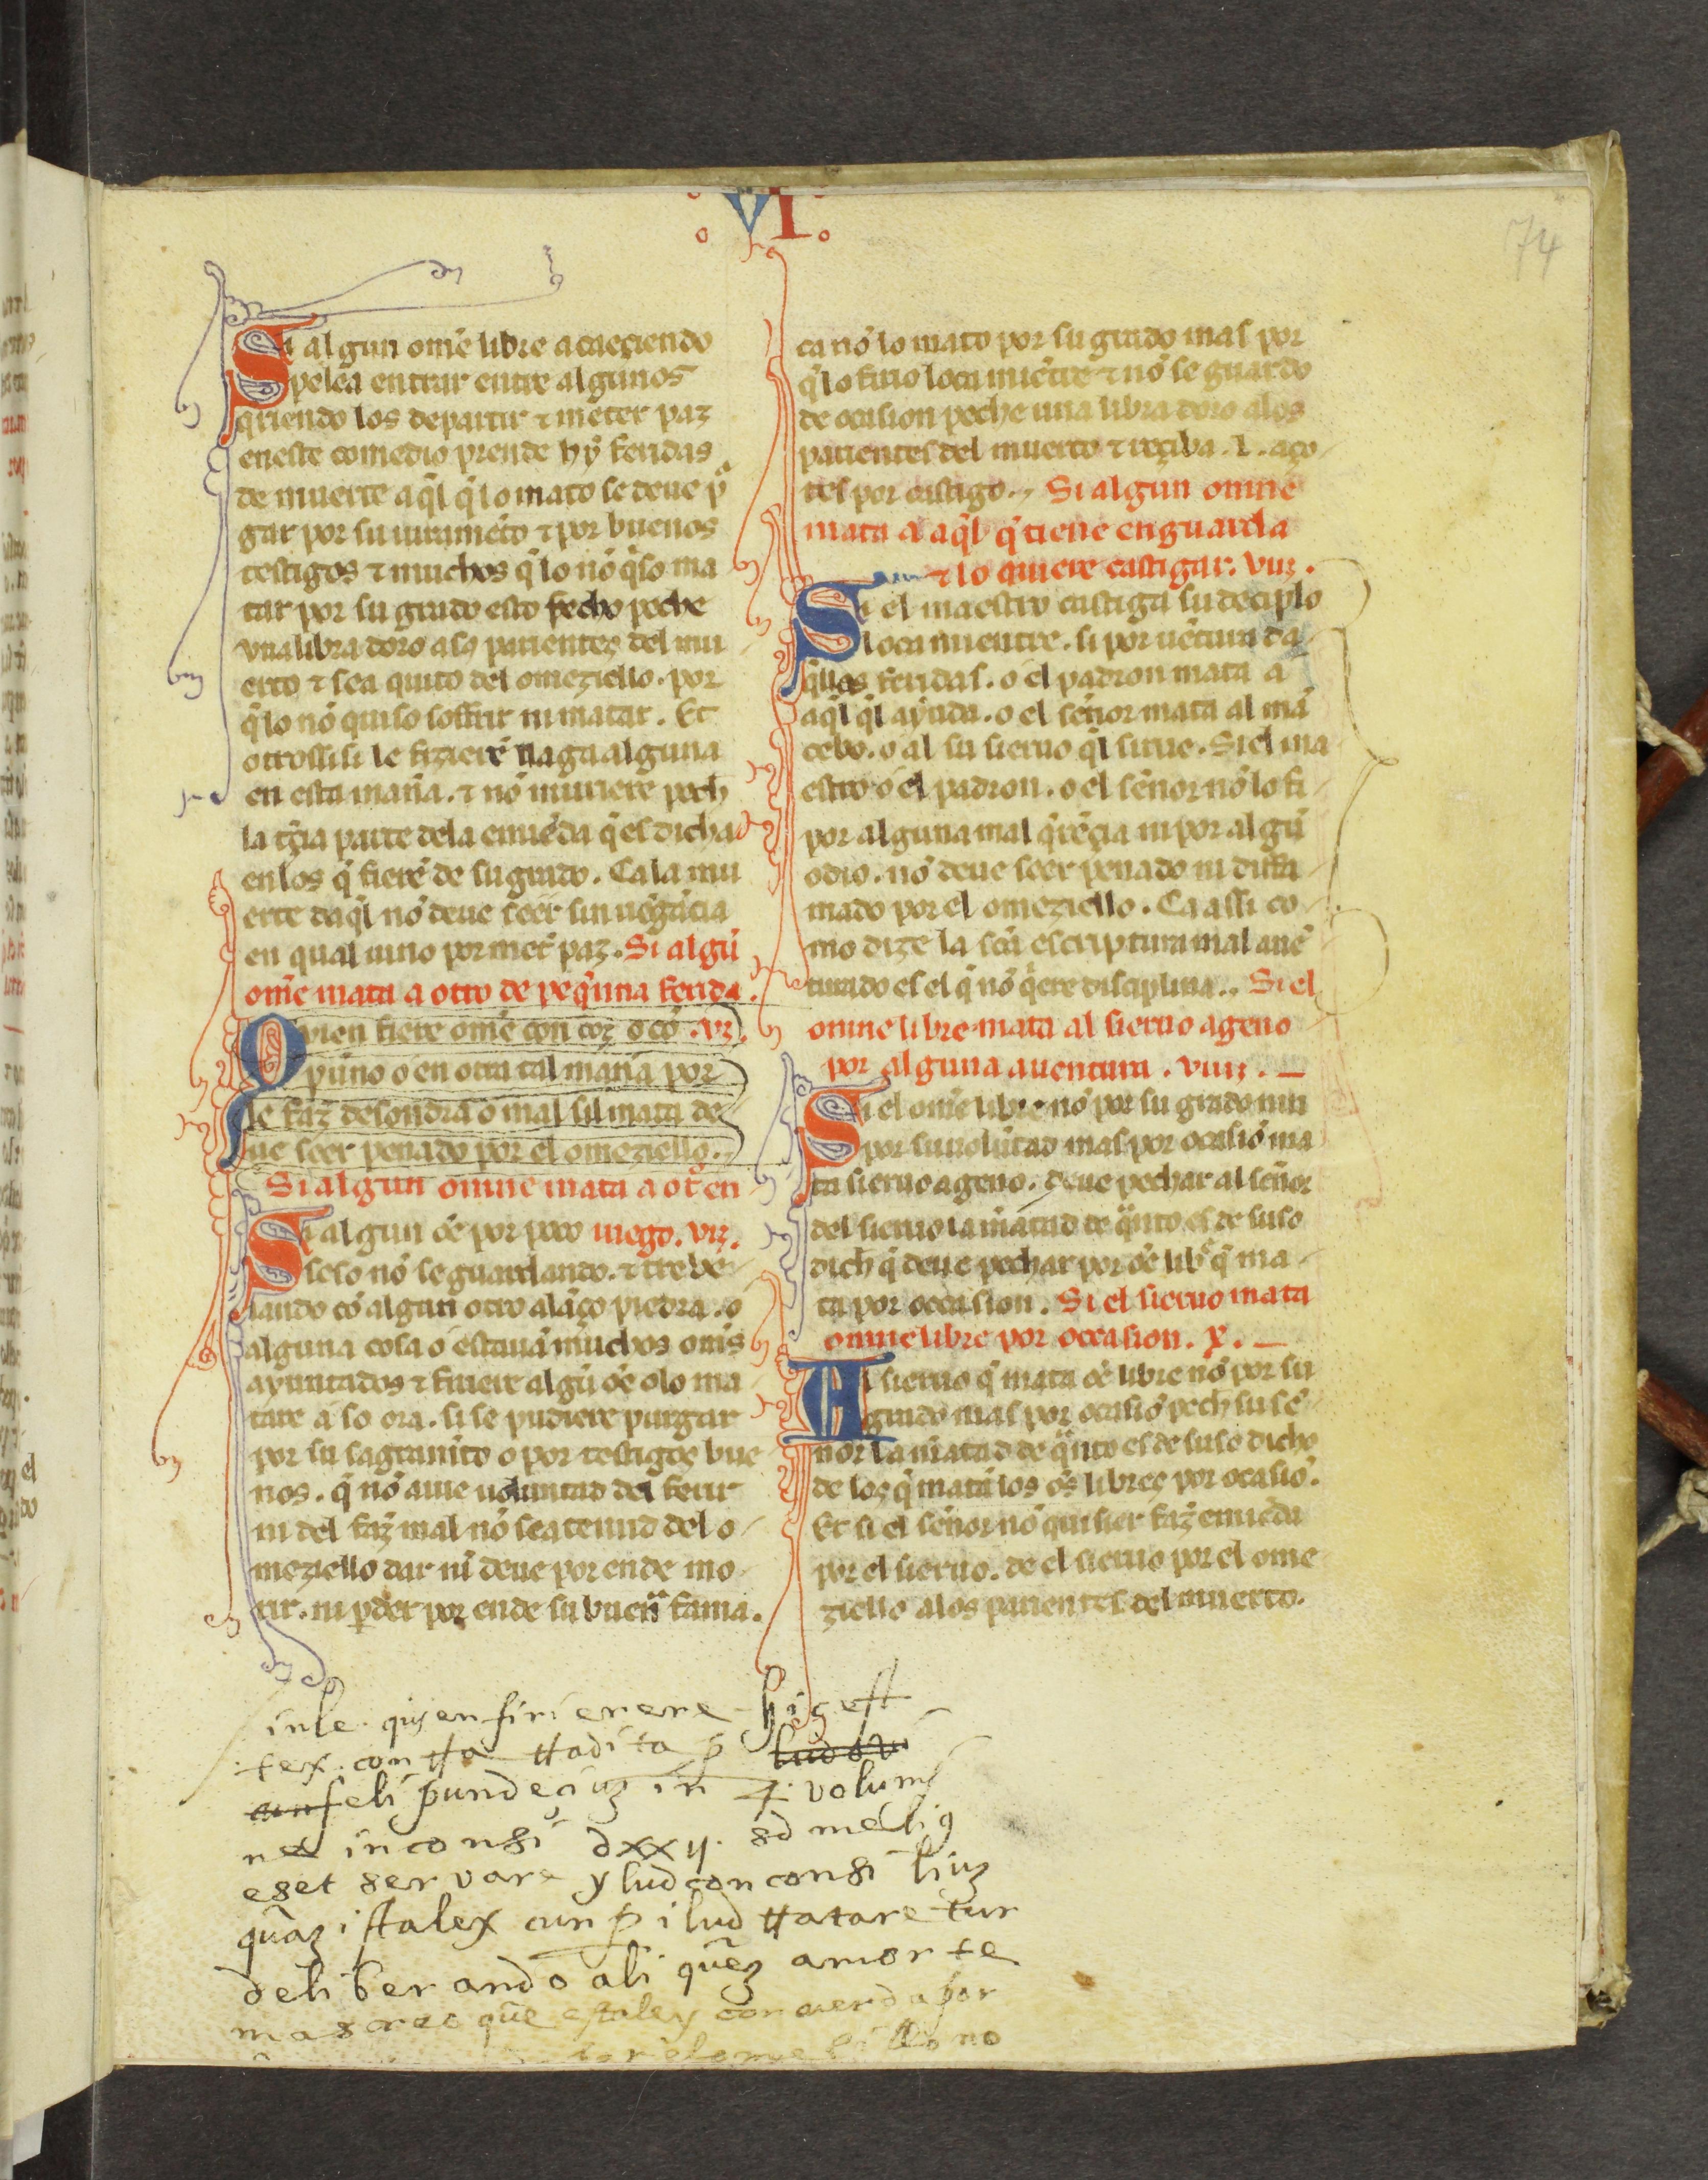 VI
74
Si algun om̃e libre acaeçiendo
pelea entrar entre algunos
q̃riendo los departir ⁊ meter paz
en este comedio prende hy feridas
de muerte aq̃l q̃ lo mato se deue pᷣ
gar por su iuramẽto ⁊ por buenos
testigos ⁊ muchos q̃ lo nõ q̃so ma
tar por su grado esto fecho peche
vna libra doro a los parientes del mu
erto ⁊ sea quito del omeziello. por
q̃ lo nõ quiso soffrir ni matar. Et
otrossi si le fizierẽ llaga alguna
en esta mañ̃a. ⁊ nõ muriere pech
la tc̃ia parte dela emiẽda q̃ es dicha
en los q̃ fierẽ de su grado. Ca la mu
erte daq̃l nõ deue seer sin uẽgãcia
en qual uino por met̃ paz. Si algũ
om̃e mata a otro de peq̃nna ferida.
Qvien fiere om̃e con coz o cõ .vi.
puño o en otra tal mañ̃a por
le faz̃ desondra o mal sil mata de
ue seer penado por el omeziello.
Si algun omne mata a ot̃ en
Si algun õe por poco iuego. vii.
seso nõ se guardando. ⁊ trebe
iando cõ algun otro alãço piedra. o
alguna cosa o estauã muchos om̃s
ayuntados ⁊ firiere algũ õe o lo ma
tare a so ora. si se pudiere purgar
por su sagramẽto o por testigos bue
nos. q̃ nõ auie uoluntad del ferir
ni del faz̃ mal nõ sea tenud del o
meziello dar nĩ deue por ende mo
rir. ni ꝑder por ende su buenᵃ fama.
ca nõ lo mato por su grado mas por
q̃ lo firio loca miẽtre ⁊ nõ se guardo
de ocasion peche una libra doro alos
parientes del muerto ⁊ reçiba .L. aço
tes por castigo. Si algun omne
mata a aq̃l q̃ tiene en guarda
⁊ lo quiere castigar. viii.
Si el maestro castiga su deciplo
loca mientre. si por uẽtura da
q̃llas feridas. o el padron mata a
aq̃l q̃l ayuda. o el señor mata al mã
cebo. o al su sieruo q̃l sirue. Si el ma
estro o el padron. o el señor nõ lo fi
por alguna mal q̃rẽçia ni por algũ
odio. nõ deue seer penado ni diffa
mado por el omeziello. Ca assi co
mo dize la scã escriptura mal auẽ
turado es el q̃ nõ q̃ere disciplina.. Si el
omne libre mata al sieruo ageno
por alguna auentura . viiii.
Si el om̃e libre nõ por su grado nin
por su uolũtad mas por ocasiõ ma
ta sieruo ageno. deue pechar al señor
del sieruo la m̃atad de q̃nto es de suso
dich q̃ deue pechar por õe libᷣ q̃ ma
ta por occasion. Si el sieruo mata
omne libre por occasion. x.
El sieruo q̃ mata õe libre nõ por su
grado mas por ocasiõ pech su sẽ
nor la m̃atad de q̃nto es de suso dicho
de los q̃ matã los õs libres por ocasiõ.
Et si el señor nõ quisier faz̃ emieda
por el sieruo. de el sieruo por el ome
ziello alos parientes del muerto.
inle. quyen firi erere hic est
tex. contta ttadita ꝑ
feli ꝑun deciuz in 4. volumj
ne in consi dxxij. sd meli9
eset servare yludcon consi liuz
quãz istalex cun ꝑ ilud ttataretur
deliberando ali quẽz amorte
mas creo que esta ley concuerda por